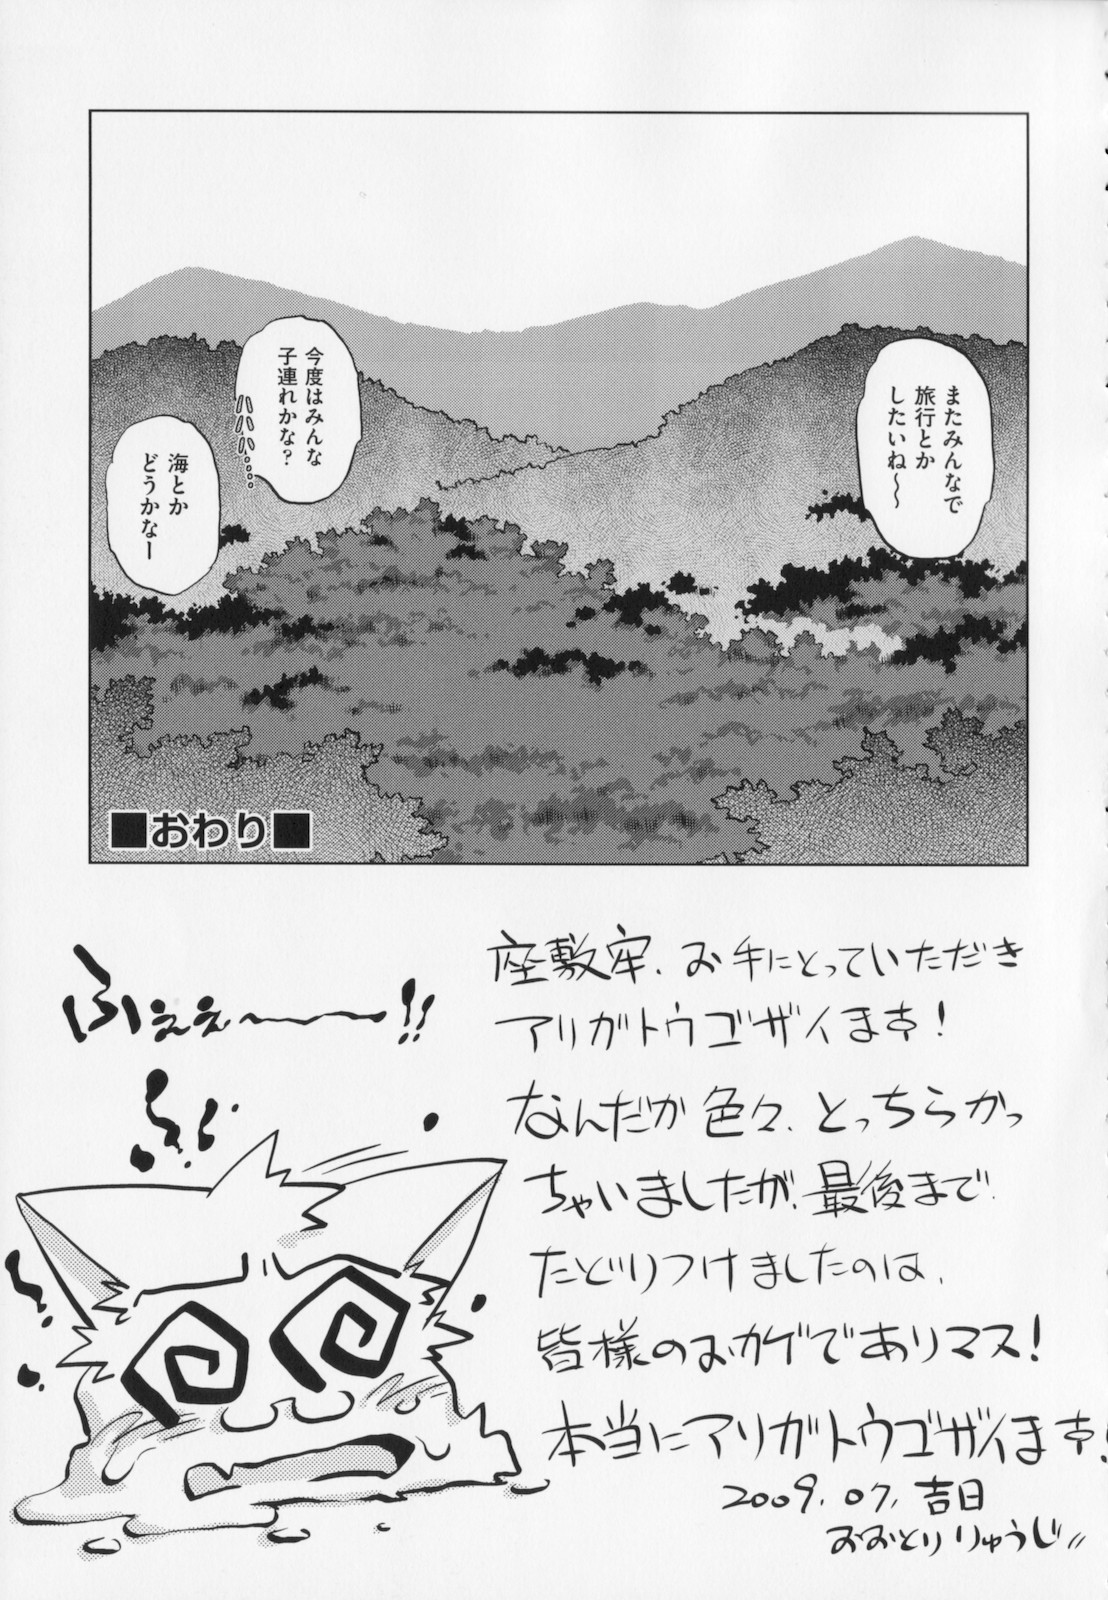 またみんなで
旅行とか
したいね～
今度はみんな
子連れかな？
ハハハ……
海とか
どうかなー
■おわり■
ふぇぇ～!!
座敷牢、お手にとっていただき
アリガトウゴザイます!
なんだか色々、とっちらかっ
ちゃいましたが、最後まで
たどりつけましたのは、
皆様のおかゲでありマス!
本当にアリガトウゴザイます!
2009.07.吉日
おおとりりゅうじ